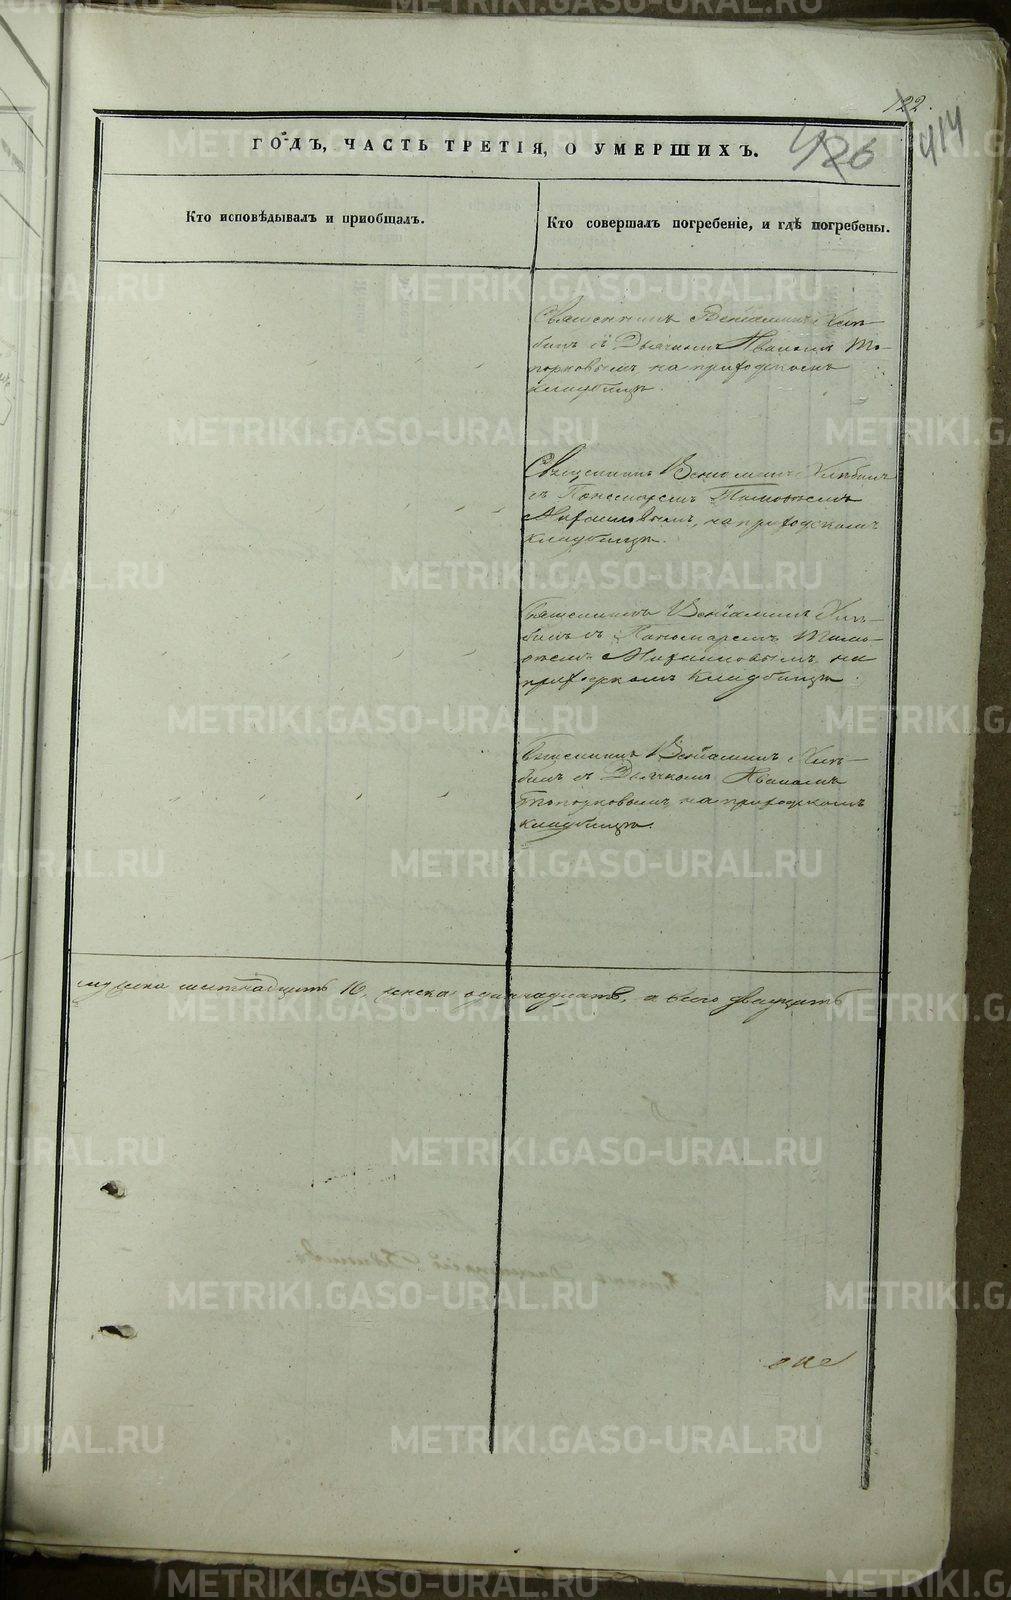 122.
414
426
ГОДЪ, ЧАСТЬ ТРЕТІЯ, О УМЕРШИХЪ.
Кто исповѣдывалъ и пріобщалъ.
Кто совершалъ погребеніе, и гдѣ погребены.
Священникъ Веніаминъ Хлѣ-
бинъ съ Дьячкомъ Иваномъ То-
порковымъ на приходскомъ
кладбищѣ.
Священникъ Веніаминъ Хлѣбинъ
съ Пономаремъ Тимофеемъ
Михайловымъ, на приходскомъ
кладбищѣ.
Священникъ Веніаминъ Хлѣ-
бинъ съ Пономаремъ Тимо-
феемъ Михайловымъ на
приходскомъ кладбищѣ.
Священникъ Веніаминъ Хлѣ-
бинъ съ Дьячкомъ Иваномъ
Топорковымъ на приходскомъ
кладбищѣ.
мужеска шестнадцать 16, женска одиннадцать, а всего двадцать
METRIKI.GASO-URAL.RU